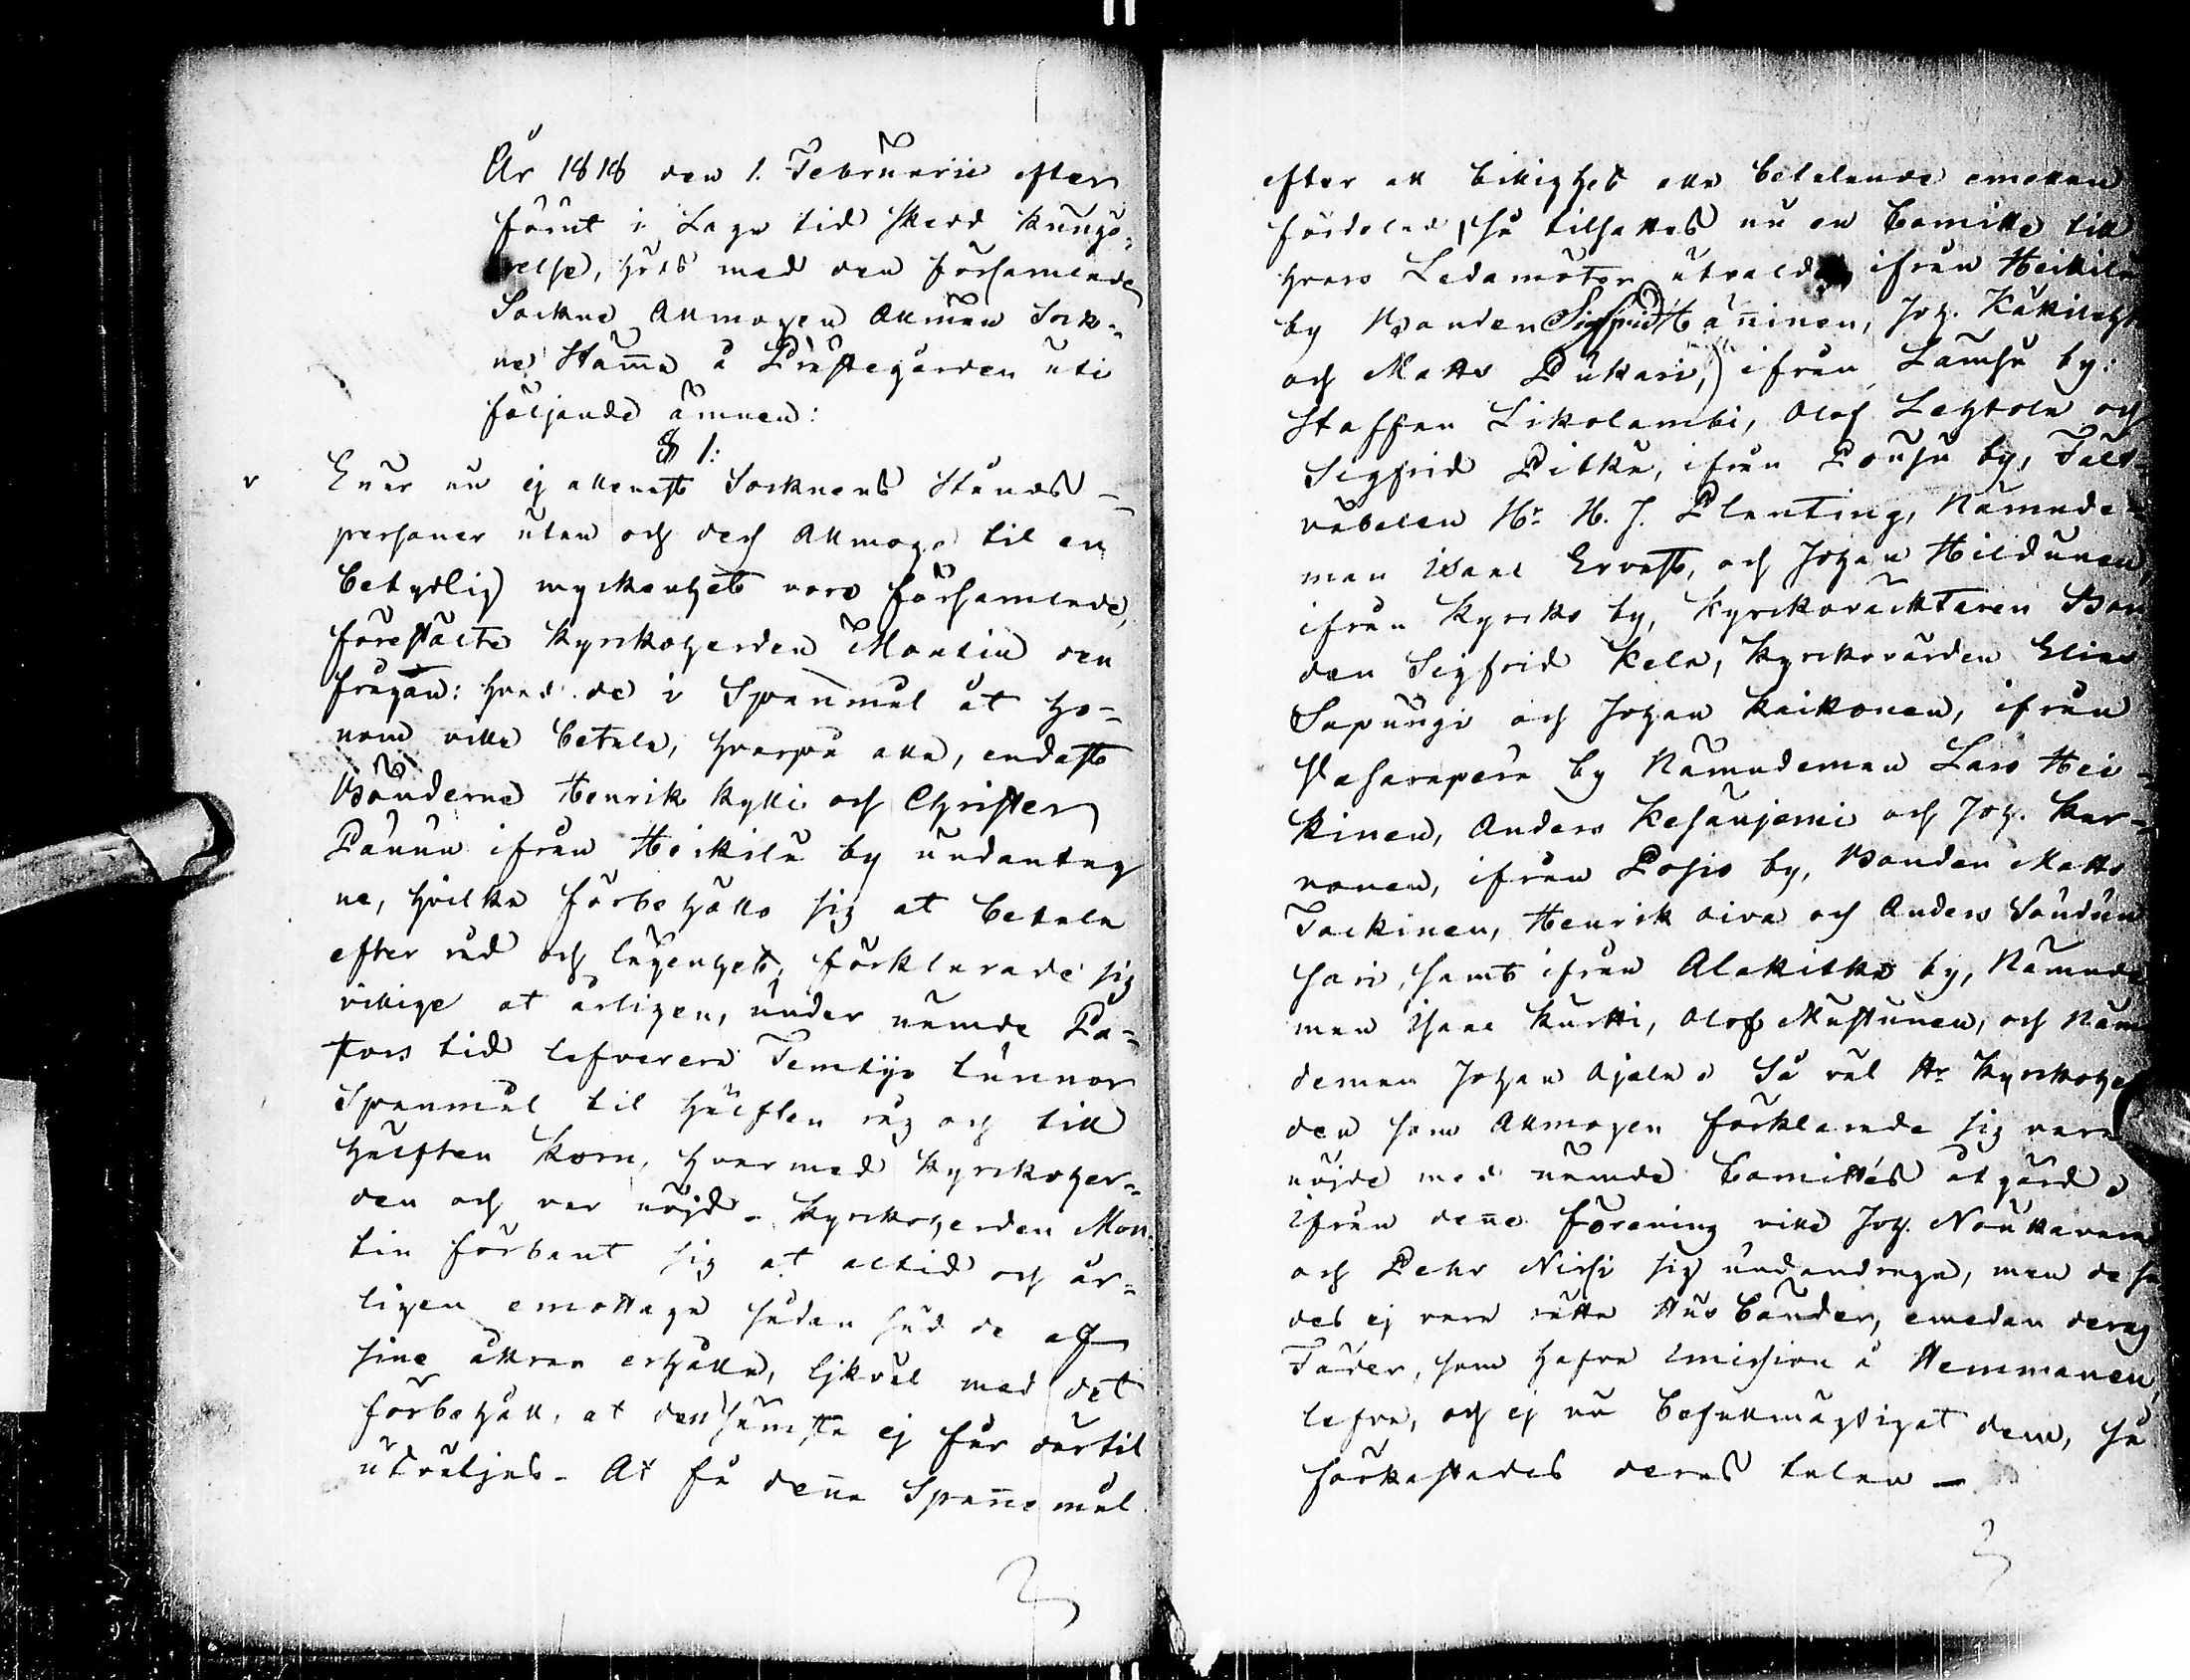 År 1818 den 1. Februarii efter
förut i Laga tid skedd kungö-
relse, höls med den församlade
Sockne Allmogen Allmän Sock-
ne Stam̄a å Prästegården uti
följande ämnen:
§ 1:
Enär nu ej allenast Socknens Stånds-
personer utan och dess Allmoge til en
betydlig myckenhet voro församlade,
förestälte Kyrkoherden Montin den
frågan: hvad de i Spanmål åt ho-
nom ville betala, hvarpå alla, endast
Bönderne Henrik Kylli och Christer
Paunu ifrån Heikilä by undantag-
ne, hvilka förbehöllo sig at betala
efter råd och lägenhet, förklarade sig
villige at årligen, under nämde Pa-
stors tid lefverera Femtijo tunnor
Spanmål til hälften råg och till
hälften Korn, hvarmed Kyrkoher-
den och var nöjd. Kyrkoherden Mon-
tin förbant sig at altid och år-
ligen emottaga sådan säd de af
sina åkrar erhålla, likväl med det
förbehåll, at den sämsta ej får dertil
utväljas. At få den̄a Span̄emål
efter all billighet alla betalande emellan
fördelad, så tilsattes nu en Comitte till
hvars Ledamöter utvaldes ifrån Heikilä
by Bonden Sigfrid Hän̄inen, Joh. Käkileh
och Matts Pukari, ifrån Lämsä by:
Staffan Sikolambi, Olof Lehtola och
Sigfrid Pitkä, ifrån Pousu by, Fält-
väbelen Hr H. J. Planting, Nämnde-
man Isaac Ervast, och Johan Hildunen,
ifrån Kyrko by, Kyrkoväcktaren Bon
den Sigfrid Kela, Kyrkovärden Elias
Sapungi och Johan Kaikonen, ifrån
Vasaraperä by Nämndeman Lars Hei-
kinen, Anders Kesäniemi och Joh. Kar-
vonen, ifrån Posio by, Bonden Matts
Jockinen, Henrik Oiva och Anders
sari, samt ifrån Alakitka by, Nämnde
man Isaac Kurtti, Olof Mustunen, och Näm
deman Johan Ajala. Så väl Hr Kyrkoher
den som Allmogen förklarade sig vara
nöjde med nämde Comittés åtgärd.
Ifrån den̄e förening ville Joh. Noukkavara
och Pehr Nissi sig undandraga, men de sa
des ej vara rätta Husbönder, emedan deras
Fäder, som hafva Imission å Hemmanen,
lefva, och ej nu befullmägtigat dem, så
förkastades deras talan —